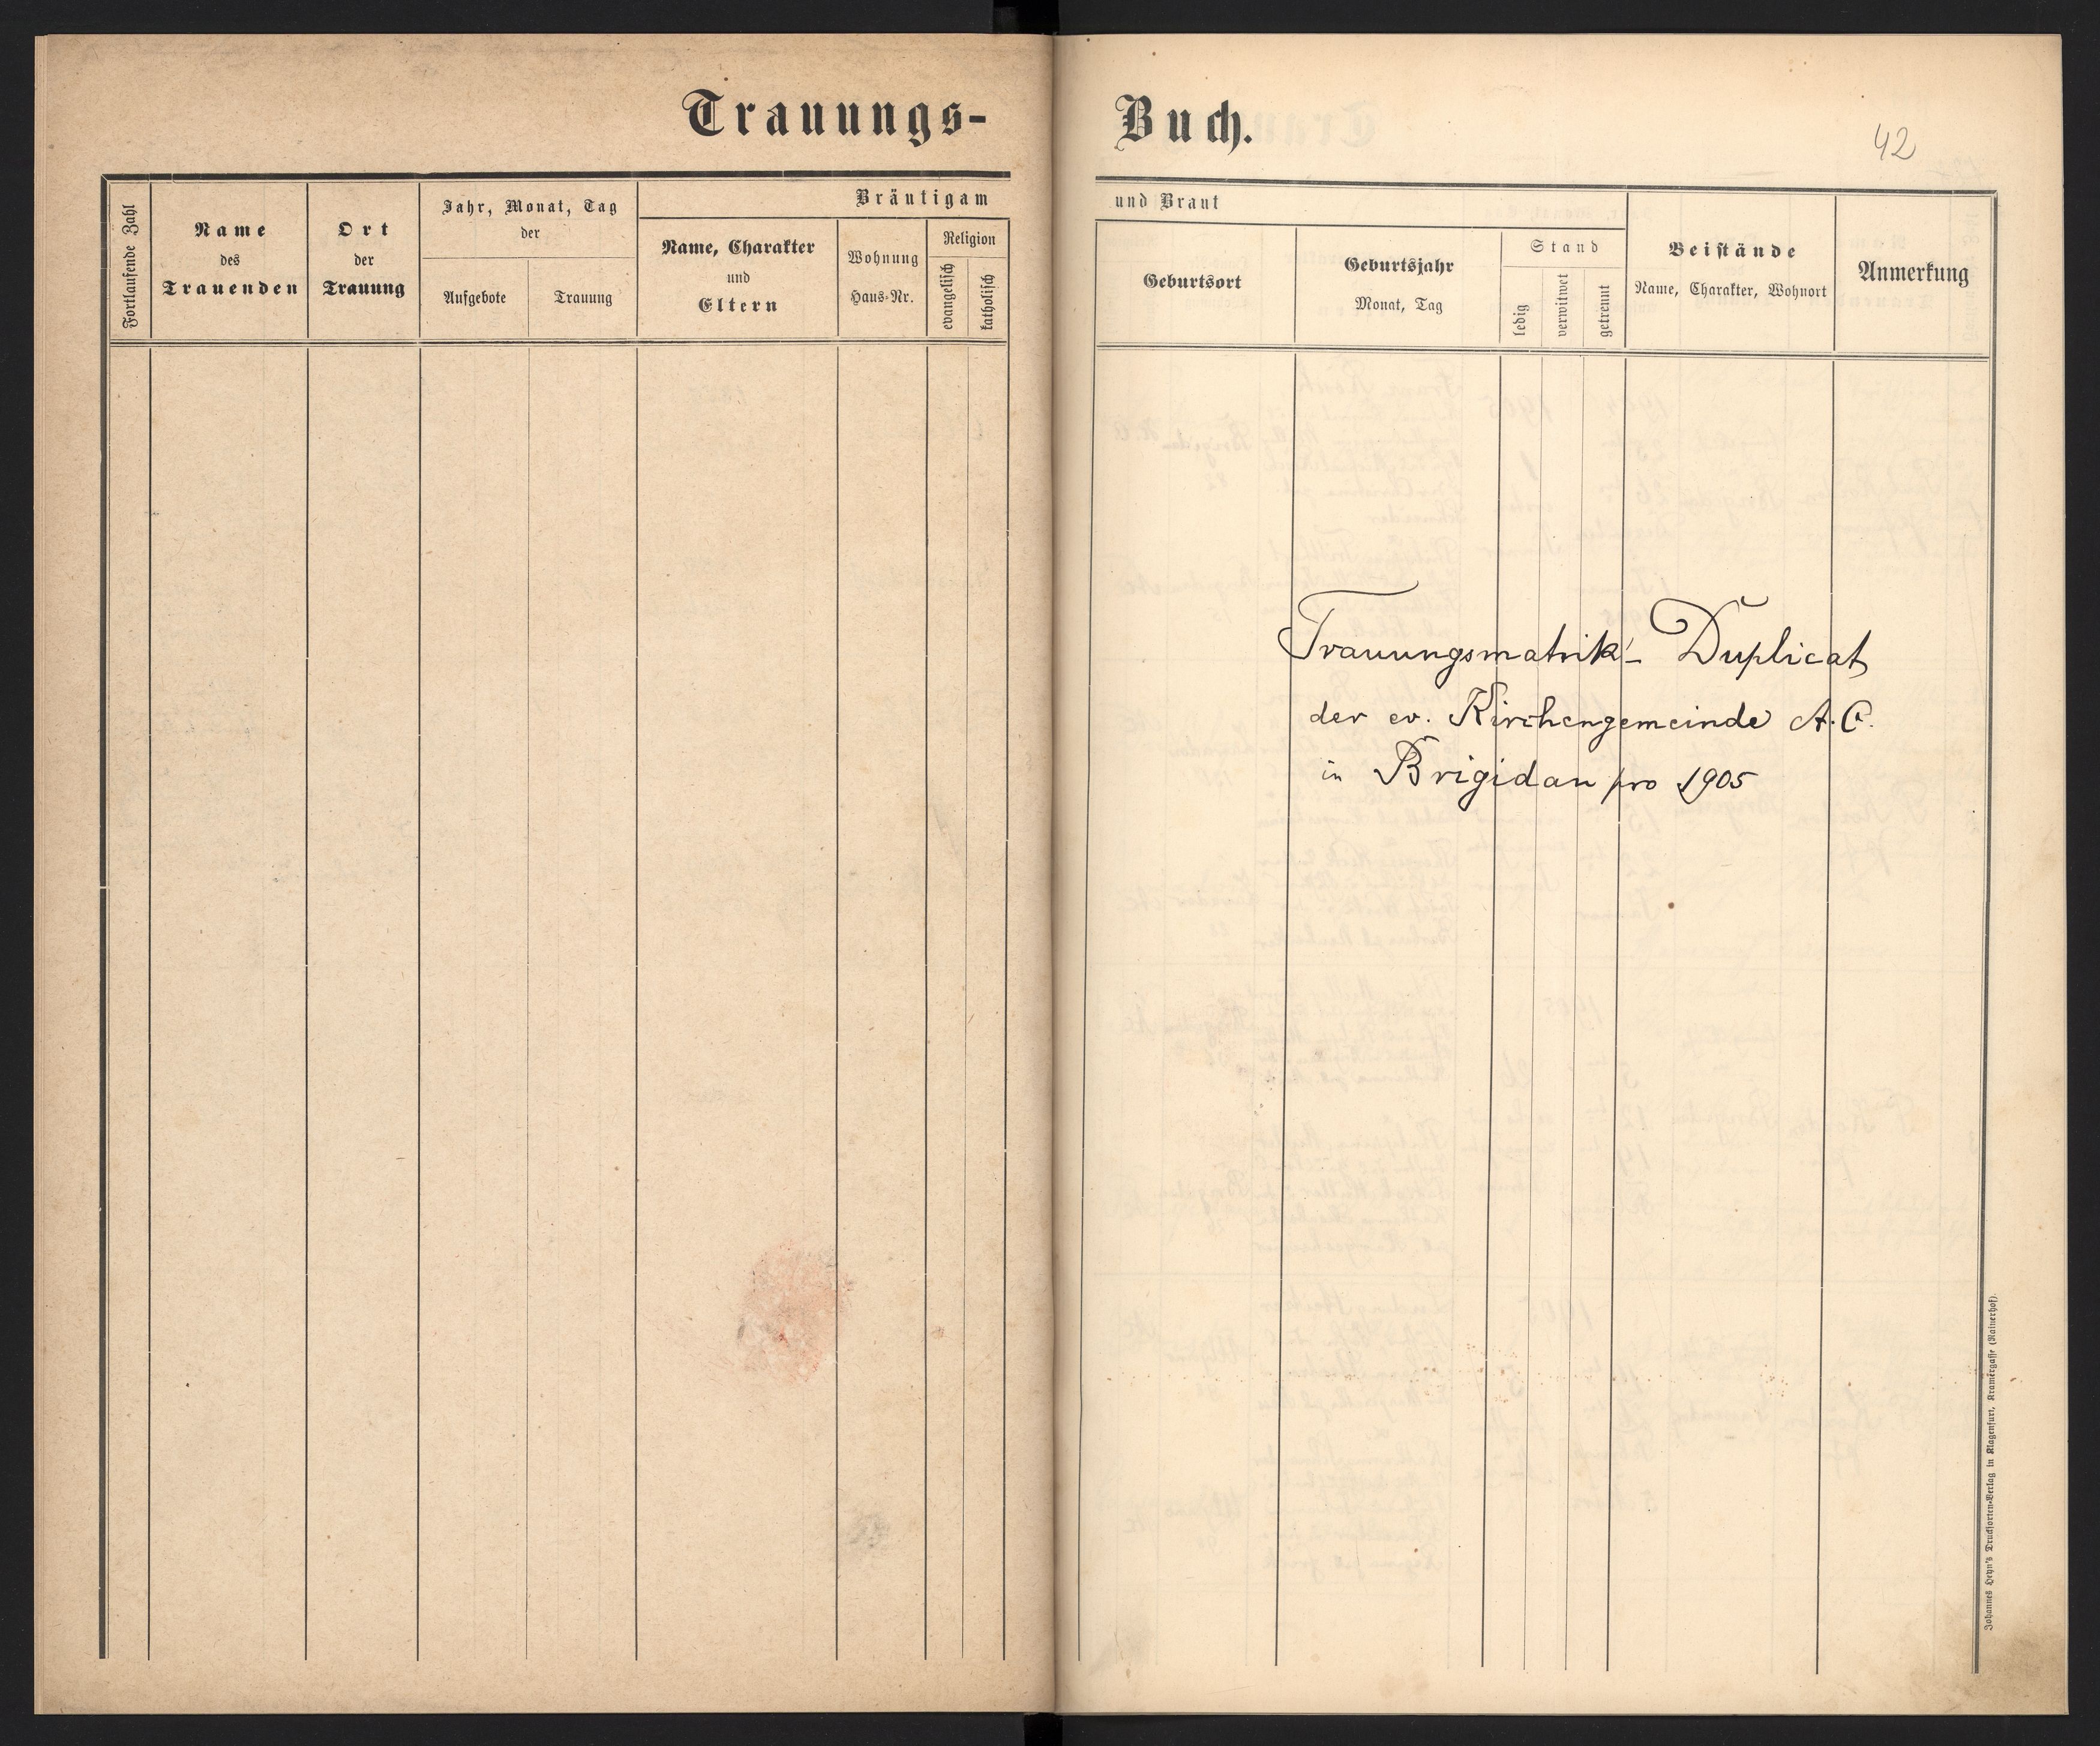 Trauungs-
Buch.
42
Fortlaufende Zahl
Name
des
Trauenden
Ort
der
Trauung
Jahr, Monat, Tag
der
Aufgebote
Trauung
Bräutigam
Name, Charakter
und
Eltern
Wohnung
Haus-Nr.
Religion
evangelisch
katholisch
und Braut
Geburtsort
Geburtsjahr
Monat, Tag
Stand
ledig
verwitwet
getrennt
Beistände
Name, Charakter, Wohnort
Anmerkung
Trauungsmatrik-Duplicat
der ev. Kirchengemeinde A. C.
in Brigidau pro 1905
Johannes Heyn's Drucksorten-Verlag in Klagenfurt, Kramergasse (Rainerhof).